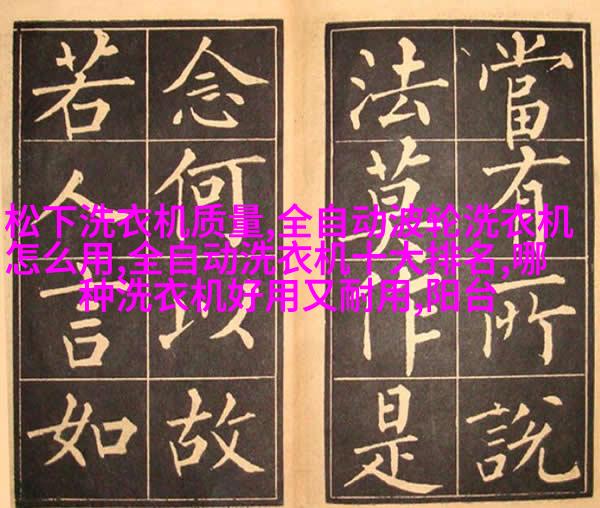 當有所說
法莫作是
念何以故
若人言如
松下洗衣机质量,全自动波轮洗衣机
怎么用,全自动洗衣机十大排名,哪
种洗衣机好用又耐用,阳台